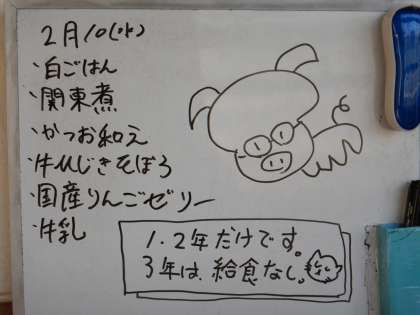 2月10(水)
・白ごはん
・関東煮
・かつお和え
・牛ひじきそぼろ
・国産りんごゼリー
・牛乳
1.2年だけです。
3年は、給食なし。